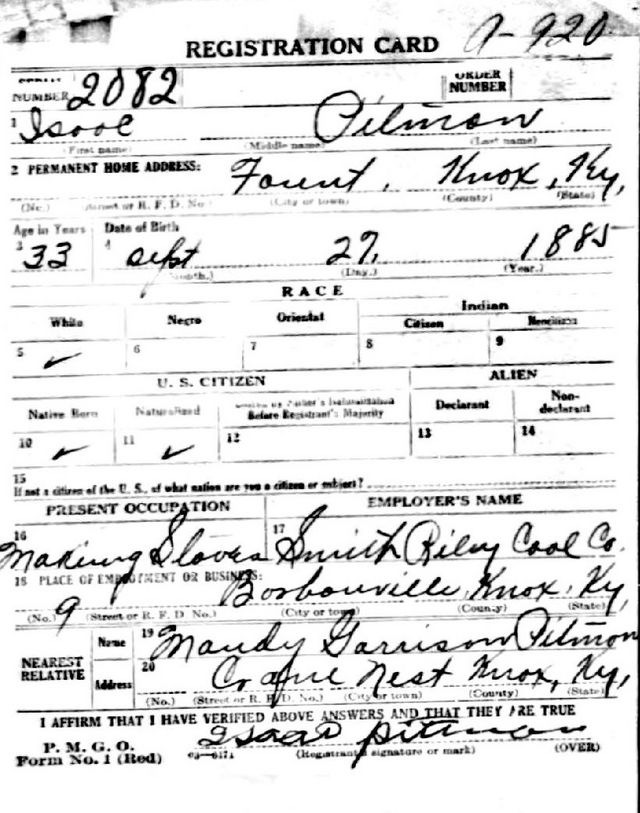 REGISTRATION CARD A-920
NUMBER 2082 ORDER NUMBER
1 Isaac Pitman
(First name) (Middle name) (Last name)
2 PERMANENT HOME ADDRESS:
Knox, Ky,
(No.) (Street or R. F. D. No.) (City or town) (County) (State)
Age in Years Date of Birth
3 33 4 Sept 27, 1885
(Month.) (Day.) (Year.)
RACE
White Negro Oriental Indian
Citizen Noncitizen
5 ✓ 6 7 8 9
U. S. CITIZEN ALIEN
Native Born Naturalized Citizen by Father's Naturalization Before Registrant's Majority Declarant Non-declarant
10 ✓ 11 ✓ 12 13 14
15
If not a citizen of the U. S., of what nation are you a citizen or subject?
PRESENT OCCUPATION EMPLOYER'S NAME
16 Making 17 Smith Riley Coal Co.
18 PLACE OF EMPLOYMENT OR BUSINESS:
9 Borbouville, Knox, Ky,
(No.) (Street or R. F. D. No.) (City or town) (County) (State)
NEAREST RELATIVE
Name 19 Mandy Garrison Pitman
Address 20 Crane Nest Knox, Ky,
(No.) (Street or R. F. D. No.) (City or town) (County) (State)
I AFFIRM THAT I HAVE VERIFIED ABOVE ANSWERS AND THAT THEY ARE TRUE
P. M. G. O.
Form No. 1 (Red) 03—6171 Isaac Pittman
(Registrant's signature or mark) (OVER)